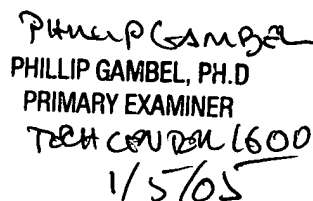 PHILLIP GAMBEL
PHILLIP GAMBEL, PH.D
PRIMARY EXAMINER
TECH CENTER 1600
1/5/05